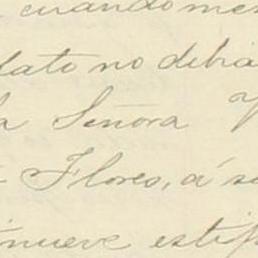 cuando me
dato no debia
la Señora
Flores, á s
nueve estip